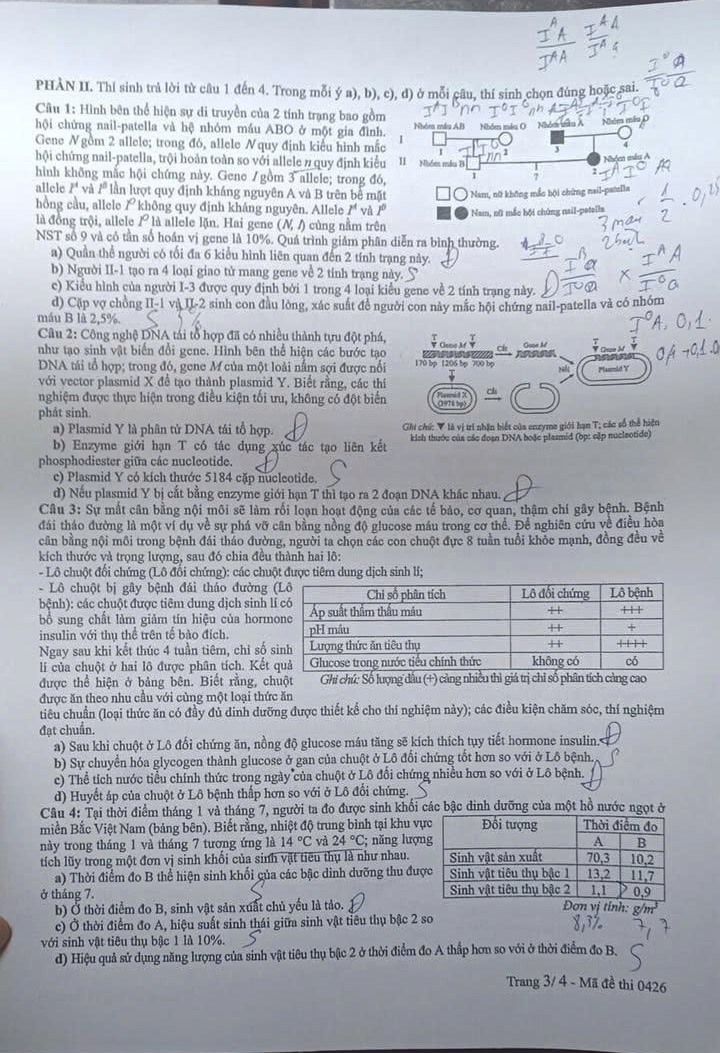 PHẦN II. Thí sinh trả lời từ câu 1 đến 4. Trong mỗi ý a), b), c), d) ở mỗi câu, thí sinh chọn đúng hoặc sai.
Câu 1: Hình bên thể hiện sự di truyền của 2 tính trạng bao gồm
hội chứng nail-patella và hệ nhóm máu ABO ở một gia đình.
Gene N gồm 2 allele; trong đó, allele N quy định kiểu hình mắc
hội chứng nail-patella, trội hoàn toàn so với allele n quy định kiểu
hình không mắc hội chứng này. Gene I gồm 3 allele; trong đó,
allele Iᴬ và Iᴮ lần lượt quy định kháng nguyên A và B trên bề mặt
hồng cầu, allele Iᴼ không quy định kháng nguyên. Allele Iᴬ và Iᴮ
là đồng trội, allele Iᴼ là allele lặn. Hai gene (N, I) cùng nằm trên
NST số 9 và có tần số hoán vị gene là 10%. Quá trình giảm phân diễn ra bình thường.
Nhóm máu AB Nhóm máu O Nhóm máu A Nhóm máu O
I 1 2 3 4
II Nhóm máu B 1 ? Nhóm máu A 2
Nam, nữ không mắc hội chứng nail-patella
Nam, nữ mắc hội chứng nail-patella
a) Quần thể người có tối đa 6 kiểu hình liên quan đến 2 tính trạng này.
b) Người II-1 tạo ra 4 loại giao tử mang gene về 2 tính trạng này. S
c) Kiểu hình của người I-3 được quy định bởi 1 trong 4 loại kiểu gene về 2 tính trạng này. Đ
d) Cặp vợ chồng II-1 và II-2 sinh con đầu lòng, xác suất để người con này mắc hội chứng nail-patella và có nhóm
máu B là 2,5%.
Câu 2: Công nghệ DNA tái tổ hợp đã có nhiều thành tựu đột phá,
như tạo sinh vật biến đổi gene. Hình bên thể hiện các bước tạo
DNA tái tổ hợp; trong đó, gene M của một loài nấm sợi được nối
với vector plasmid X để tạo thành plasmid Y. Biết rằng, các thí
nghiệm được thực hiện trong điều kiện tối ưu, không có đột biến
phát sinh.
T Gene M T Cắt Gene M T Gene M T
170 bp 1206 bp 700 bp Nối Plasmid Y
T
Plasmid X
(3978 bp) Cắt
Ghi chú: ▼ là vị trí nhận biết của enzyme giới hạn T; các số thể hiện
kích thước của các đoạn DNA hoặc plasmid (bp: cặp nucleotide)
a) Plasmid Y là phân tử DNA tái tổ hợp. Đ
b) Enzyme giới hạn T có tác dụng xúc tác tạo liên kết
phosphodiester giữa các nucleotide.
c) Plasmid Y có kích thước 5184 cặp nucleotide. S
d) Nếu plasmid Y bị cắt bằng enzyme giới hạn T thì tạo ra 2 đoạn DNA khác nhau. Đ
Câu 3: Sự mất cân bằng nội môi sẽ làm rối loạn hoạt động của các tế bào, cơ quan, thậm chí gây bệnh. Bệnh
đái tháo đường là một ví dụ về sự phá vỡ cân bằng nồng độ glucose máu trong cơ thể. Để nghiên cứu về điều hòa
cân bằng nội môi trong bệnh đái tháo đường, người ta chọn các con chuột đực 8 tuần tuổi khỏe mạnh, đồng đều về
kích thước và trọng lượng, sau đó chia đều thành hai lô:
- Lô chuột đối chứng (Lô đối chứng): các chuột được tiêm dung dịch sinh lí;
- Lô chuột bị gây bệnh đái tháo đường (Lô
bệnh): các chuột được tiêm dung dịch sinh lí có
bổ sung chất làm giảm tín hiệu của hormone
insulin với thụ thể trên tế bào đích.
Ngay sau khi kết thúc 4 tuần tiêm, chỉ số sinh
lí của chuột ở hai lô được phân tích. Kết quả
được thể hiện ở bảng bên. Biết rằng, chuột
được ăn theo nhu cầu với cùng một loại thức ăn
Chỉ số phân tích Lô đối chứng Lô bệnh
Áp suất thẩm thấu máu ++ +++
pH máu ++ +
Lượng thức ăn tiêu thụ ++ ++++
Glucose trong nước tiểu chính thức không có có
Ghi chú: Số lượng dấu (+) càng nhiều thì giá trị chỉ số phân tích càng cao
tiêu chuẩn (loại thức ăn có đầy đủ dinh dưỡng được thiết kế cho thí nghiệm này); các điều kiện chăm sóc, thí nghiệm
đạt chuẩn.
a) Sau khi chuột ở Lô đối chứng ăn, nồng độ glucose máu tăng sẽ kích thích tụy tiết hormone insulin. Đ
b) Sự chuyển hóa glycogen thành glucose ở gan của chuột ở Lô đối chứng tốt hơn so với ở Lô bệnh. S
c) Thể tích nước tiểu chính thức trong ngày của chuột ở Lô đối chứng nhiều hơn so với ở Lô bệnh.
d) Huyết áp của chuột ở Lô bệnh thấp hơn so với ở Lô đối chứng. S
Câu 4: Tại thời điểm tháng 1 và tháng 7, người ta đo được sinh khối các bậc dinh dưỡng của một hồ nước ngọt ở
miền Bắc Việt Nam (bảng bên). Biết rằng, nhiệt độ trung bình tại khu vực
này trong tháng 1 và tháng 7 tương ứng là 14 °C và 24 °C; năng lượng
tích lũy trong một đơn vị sinh khối của sinh vật tiêu thụ là như nhau.
Đối tượng Thời điểm đo
A B
Sinh vật sản xuất 70,3 10,2
Sinh vật tiêu thụ bậc 1 13,2 11,7
Sinh vật tiêu thụ bậc 2 1,1 0,9
Đơn vị tính: g/m³
8,3% 7,7
a) Thời điểm đo B thể hiện sinh khối của các bậc dinh dưỡng thu được
ở tháng 7. S
b) Ở thời điểm đo B, sinh vật sản xuất chủ yếu là tảo. Đ
c) Ở thời điểm đo A, hiệu suất sinh thái giữa sinh vật tiêu thụ bậc 2 so
với sinh vật tiêu thụ bậc 1 là 10%. S
d) Hiệu quả sử dụng năng lượng của sinh vật tiêu thụ bậc 2 ở thời điểm đo A thấp hơn so với ở thời điểm đo B. S
Trang 3/ 4 - Mã đề thi 0426